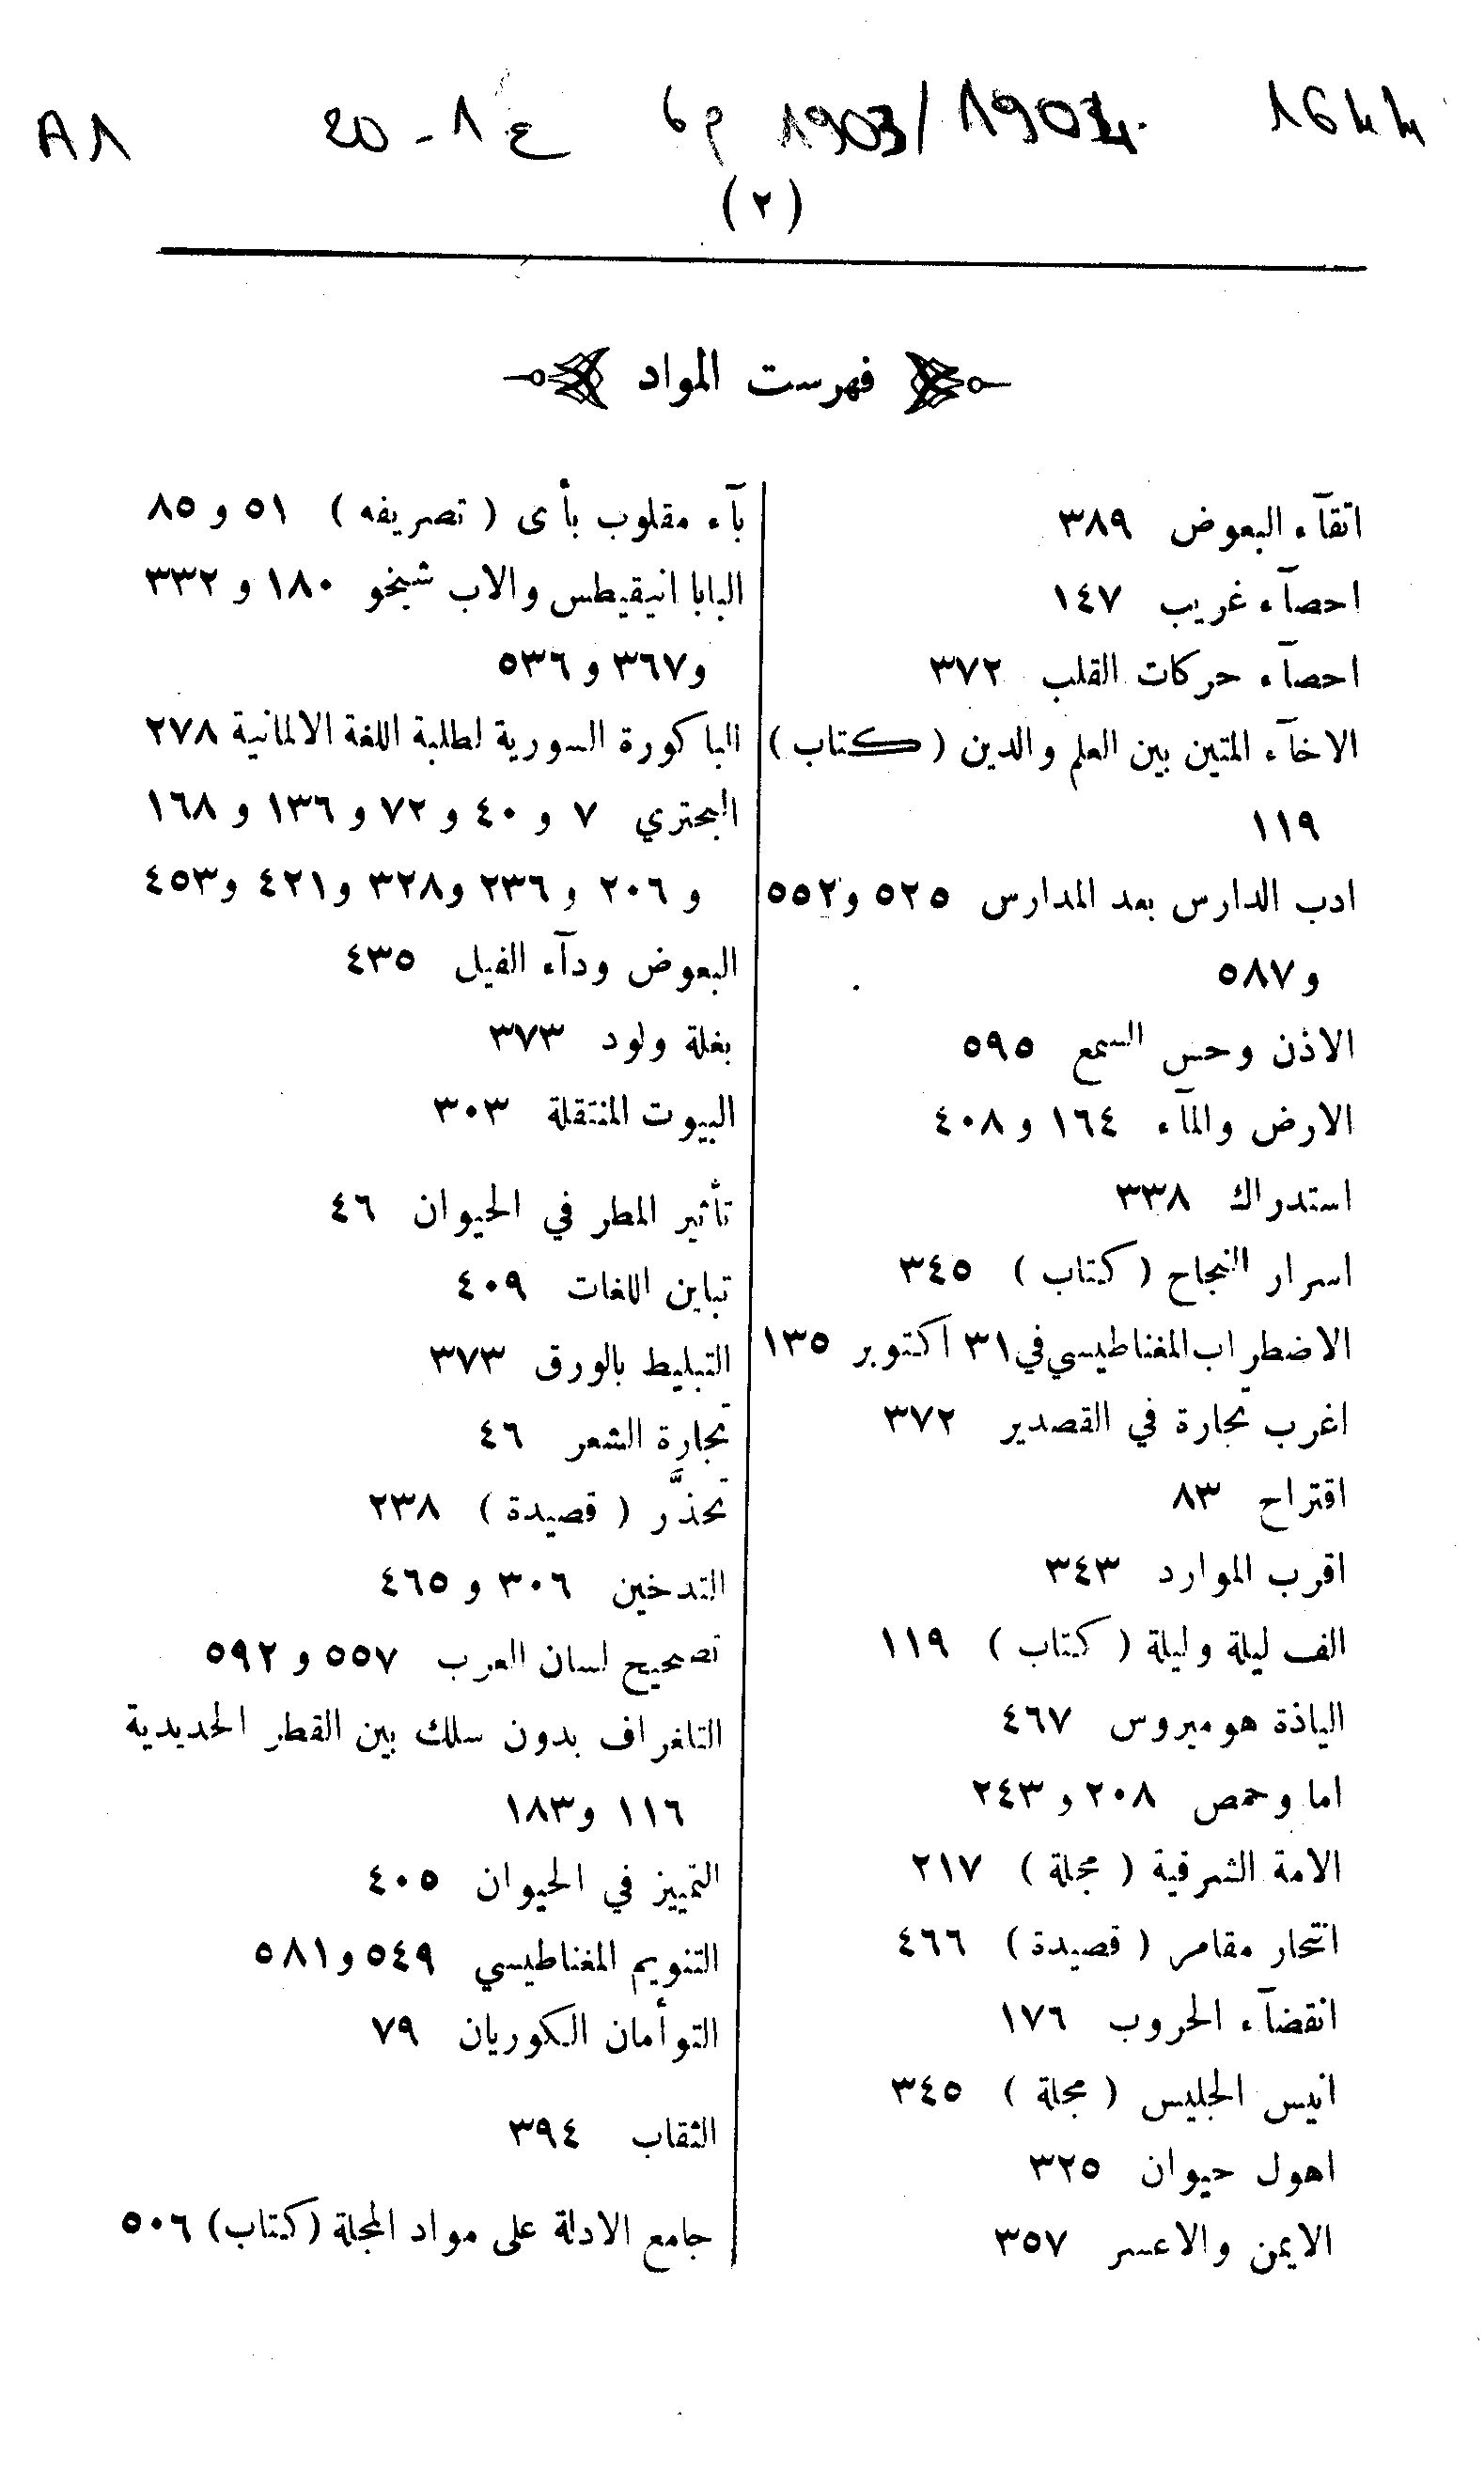 A1 20 - 1 ع 6 م 1903/1904 1644
(٢)
فهرست المواد
اتقآء البعوض ٣٨٩
احصآء غريب ١٤٧
احصآء حركات القلب ٣٧٢
الاخآء المتين بين العلم والدين (كتاب)
١١٩
ادب الدارس بعد المدارس ٥٢٥ و٥٥٢
و٥٨٧
الاذن وحس السمع ٥٩٥
الارض والمآء ١٦٤ و ٤٠٨
استدراك ٣٣٨
اسرار النجاح (كتاب) ٣٤٥
الاضطراب المغناطيسي في ٣١ اكتوبر ١٣٥
اغرب تجارة في القصدير ٣٧٢
اقتراح ٨٣
اقرب الموارد ٣٤٣
الف ليلة وليلة (كتاب) ١١٩
الياذة هوميروس ٤٦٧
اما وحمص ٢٠٨ و ٢٤٣
الامة الشرقية (مجلة) ٢١٧
انتحار مقامر (قصيدة) ٤٦٦
انقضآء الحروب ١٧٦
انيس الجليس (مجلة) ٣٤٥
اهول حيوان ٣٢٥
الايمن والاعسر ٣٥٧
بآء مقلوب بأى (تصريفه) ٥١ و ٨٥
البابا انيقيطس والاب شيخو ١٨٠ و ٣٣٢
و٣٦٧ و ٥٣٦
الباكورة السورية لطلبة اللغة الالمانية ٢٧٨
البحتري ٧ و ٤٠ و ٧٢ و ١٣٦ و ١٦٨
و ٢٠٦ و ٢٣٦ و٣٢٨ و٤٢١ و٤٥٣
البعوض ودآء الفيل ٤٣٥
بغلة ولود ٣٧٣
البيوت المنتقلة ٣٠٣
تأثير المطر في الحيوان ٤٦
تباين اللغات ٤٠٩
التبليط بالورق ٣٧٣
تجارة الشعر ٤٦
تحذَّر (قصيدة) ٢٣٨
التدخين ٣٠٦ و ٤٦٥
تصحيح لسان العرب ٥٥٧ و ٥٩٢
التلغراف بدون سلك بين القطر الحديدية
١١٦ و١٨٣
التمييز في الحيوان ٤٠٥
التنويم المغناطيسي ٥٤٩ و٥٨١
التوأمان الكوريان ٧٩
الثقاب ٣٩٤
جامع الادلة على مواد المجلة (كتاب) ٥٠٦